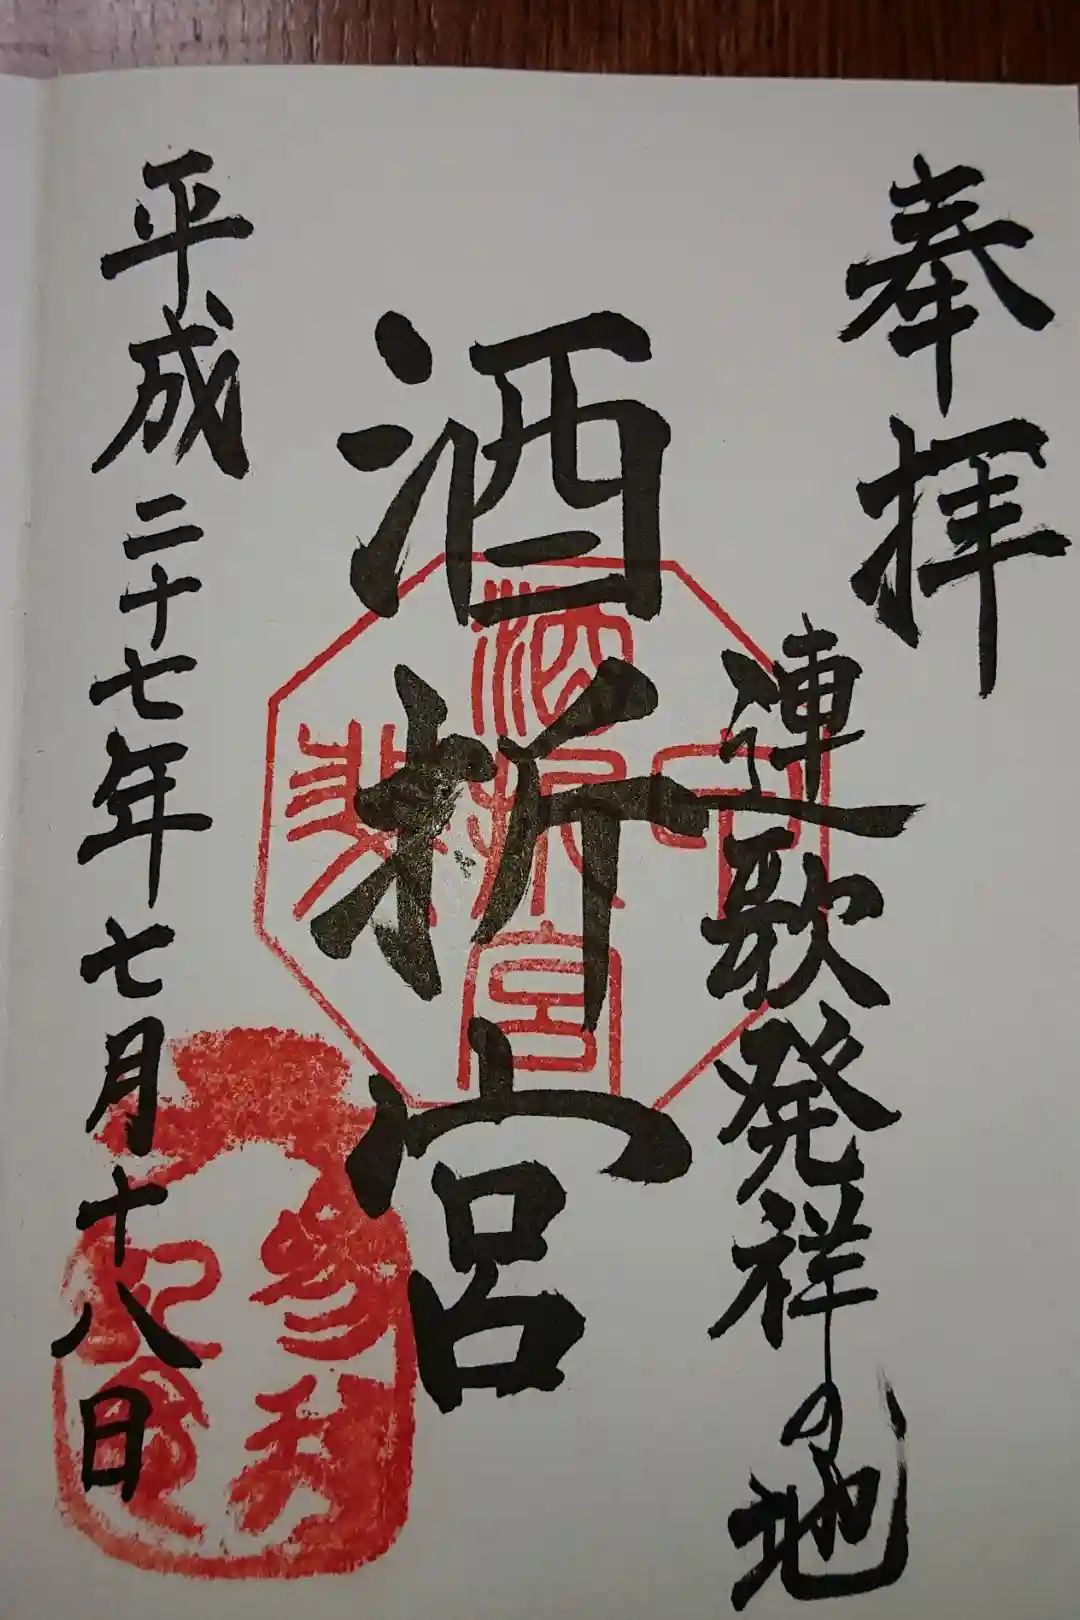 奉拝
連歌発祥の地
酒折宮
甲斐
酒折宮
平成二十七年七月十八日
参拝
記念